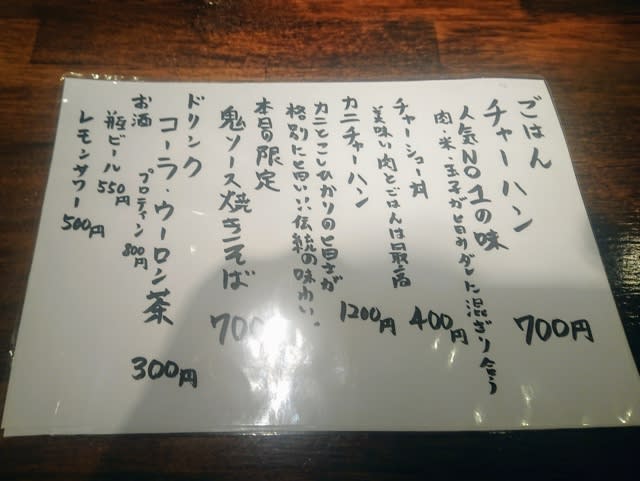 ごはん
チャーハン 700円
人気NO1の味
肉・米・玉子が旨みダレに混ざり合う
チャーシュー丼 400円
美味い肉とごはんは最高
カニチャーハン 1200円
カニとこしひかりの旨さが
格別に旨い!!伝統の味わい。
本日の限定
鬼ソース焼きそば 700
ドリンク
コーラ・ウーロン茶 300円
プロティン 800円
お酒
瓶ビール 550円
レモンサワー 500円